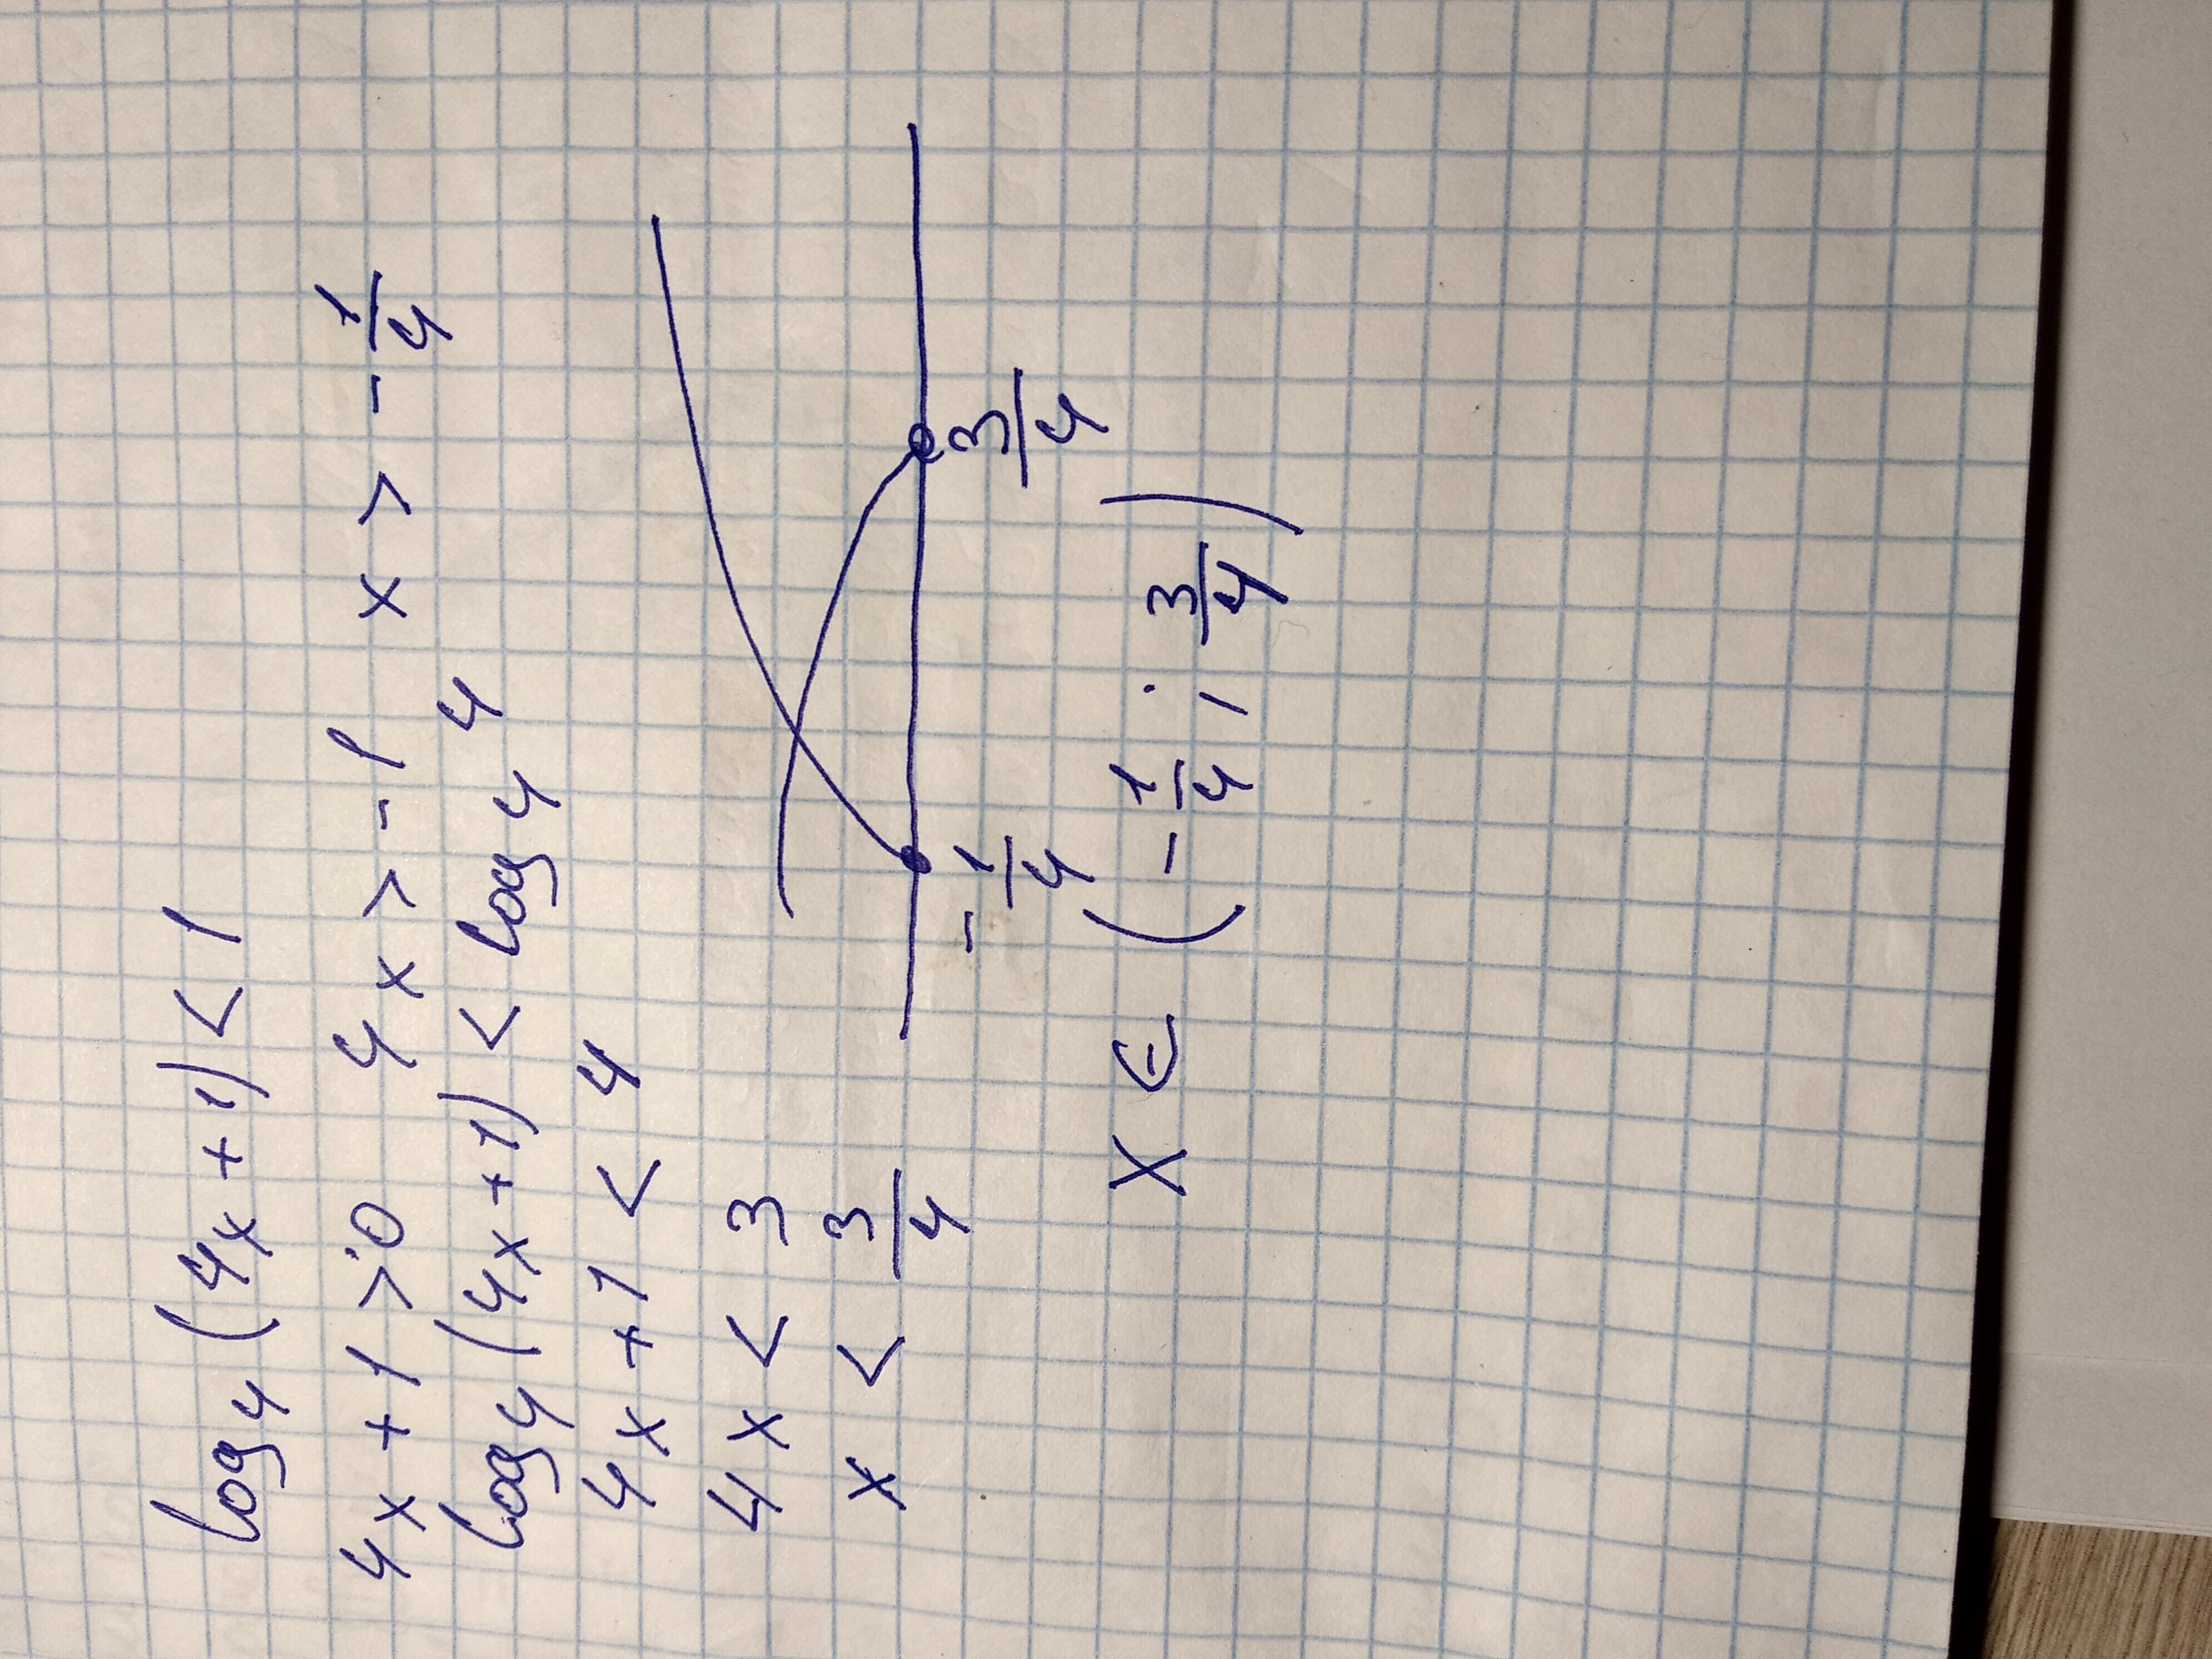 log₄(4x+1)<1
4x+1>0 4x>-1 x>-1/4
log₄(4x+1)<log₄4
4x+1<4
4x<3
x<3/4
-1/4 3/4
x∈(-1/4; 3/4)